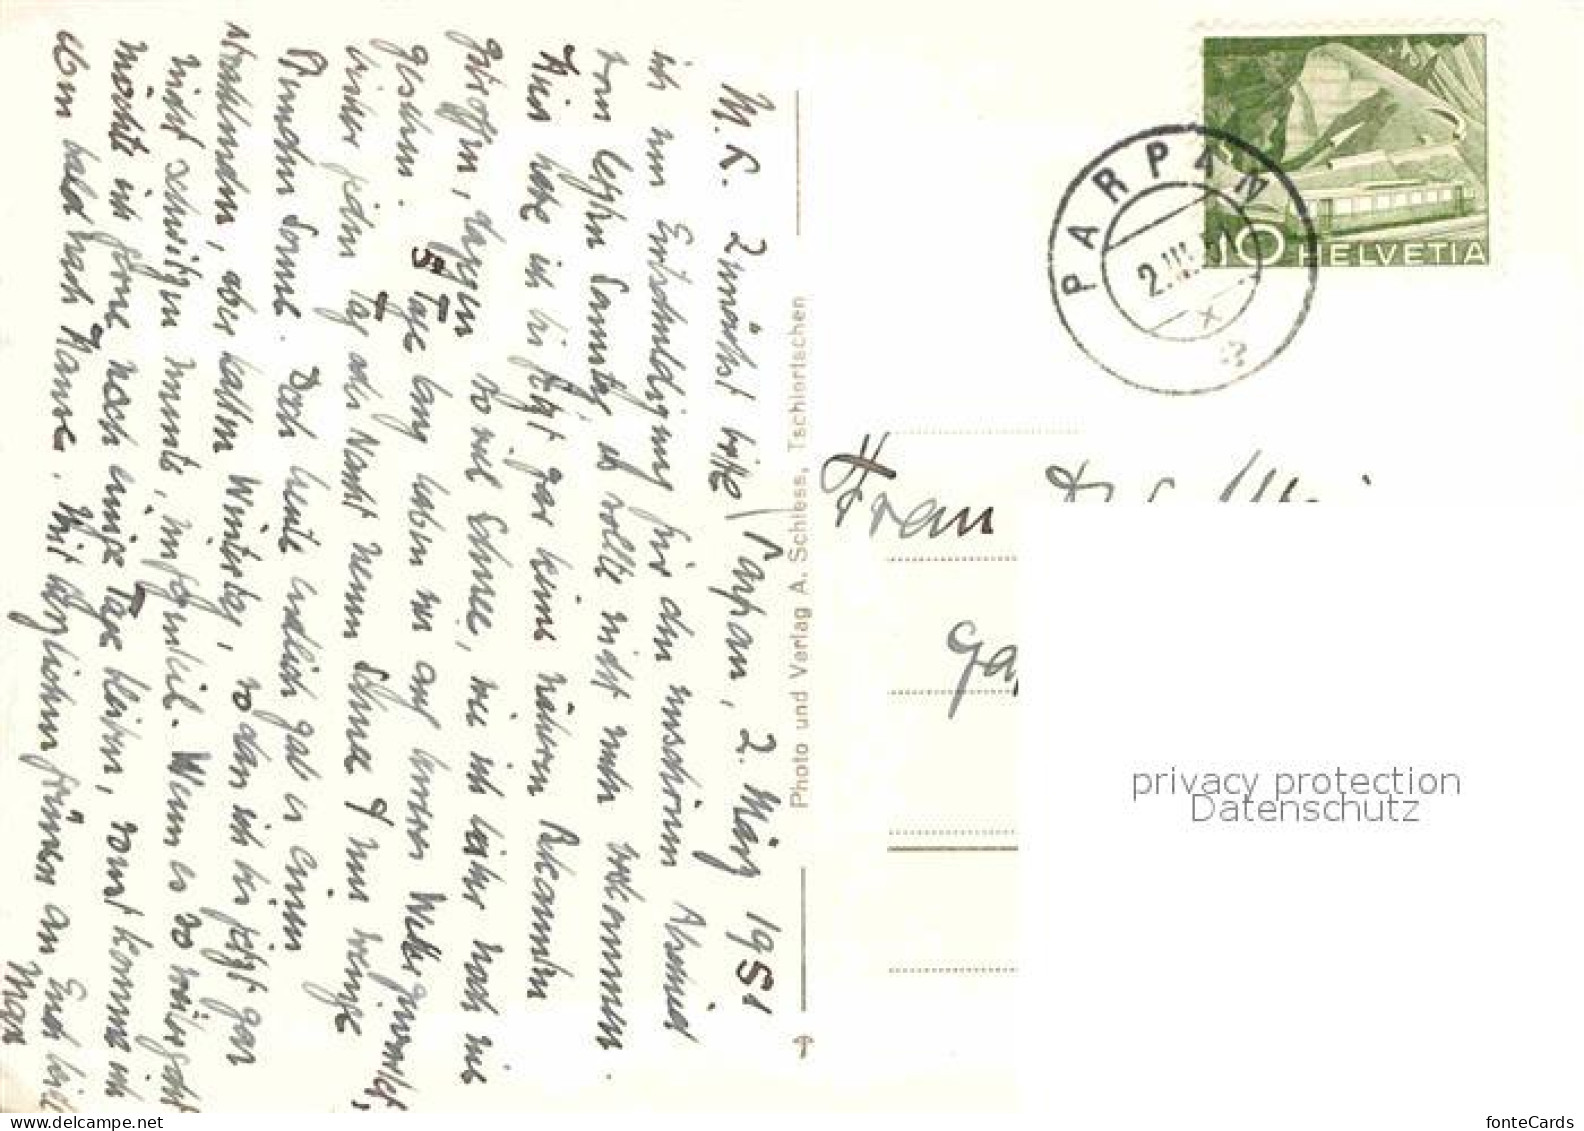 M. L. Zunächst bitte Parpan, 2. März 1951
ich um Entschuldigung für den unschönen Abschied
vom letzten Samstag, es sollte nicht mehr vorkommen.
Hier habe ich bis jetzt gar keine näheren Bekannten
getroffen, dagegen so viel Schnee, wie ich bisher noch nie
gesehen. 5 Tage lang haben wir auf besseres Wetter gewartet,
bisher jeden Tag oder Nacht neuen Schnee & nur wenige
Stunden Sonne. Doch heute endlich gab es einen
strahlenden, aber kalten Wintertag, so dass ich bis jetzt gar
nicht schwitzen musste, im Gegenteil. Wenn es so weitergeht
möchte ich gerne noch einige Tage bleiben, sonst komme ich
eben bald nach Hause. Mit herzlichen Grüssen an Euch beide
Max
Photo und Verlag A. Schiess, Tschiertschen
PARPAN
2.III.51
10 HELVETIA
Frau Dr.
privacy protection
Datenschutz
fonteCards